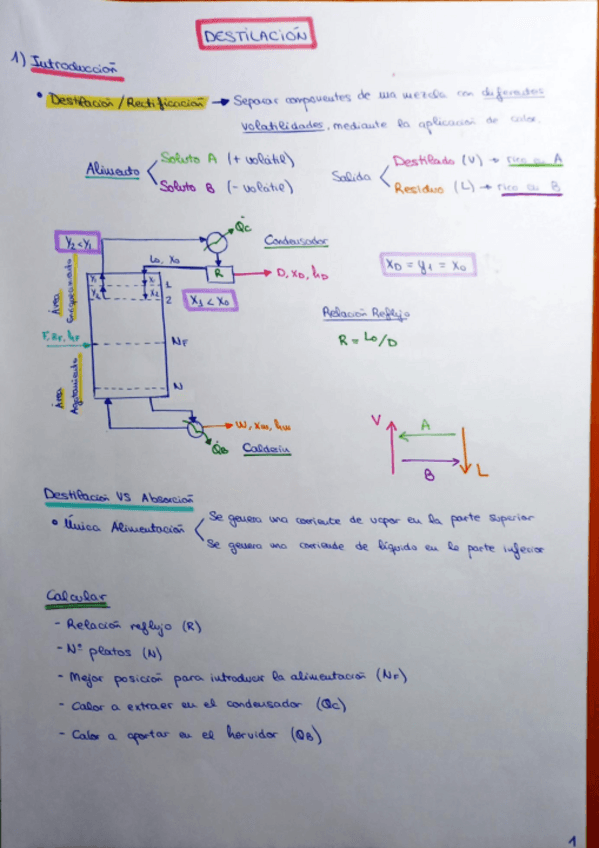 DESTILACIÓN
1) Introducción
• Destilación / Rectificación → Separar componentes de una mezcla con diferentes
volatilidades, mediante la aplicación de calor.
Alimento
Soluto A (+ volátil)
Soluto B (- volátil)
Salida
Destilado (V) → rico en A
Residuo (L) → rico en B
Q̇c
Y₂ < Y₁
Condensador
L₀, X₀
R
D, X_D, h_D
X_D = Y₁ = X₀
Y₁
X₁
1
Y₂
X₂
2
X₁ < X₀
Área Enriquecimiento
Relación Reflujo
R = L₀/D
F, z_F, h_F
N_F
Área Agotamiento
N
W, X_W, h_W
Q̇_B
Calderín
V
A
B
L
Destilación VS Absorción
• Única Alimentación
Se genera una corriente de vapor en la parte superior
Se genera una corriente de líquido en la parte inferior
Calcular
- Relación reflujo (R)
- Nº platos (N)
- Mejor posición para introducir la alimentación (N_F)
- Calor a extraer en el condensador (Q̇c)
- Calor a aportar en el hervidor (Q̇_B)
1